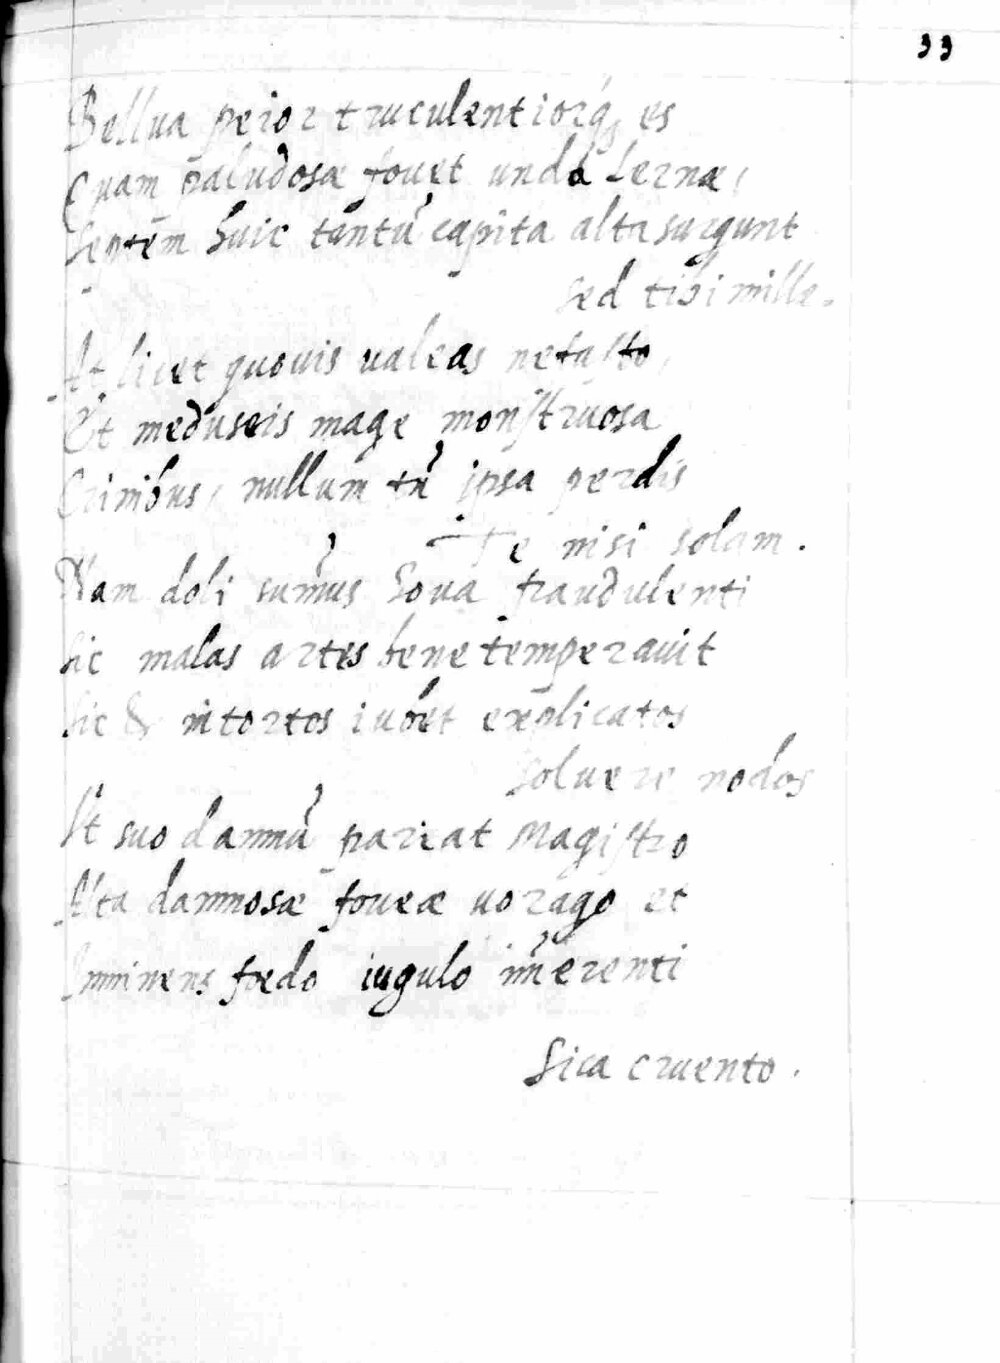 33
Bellua peior truculentiorq; es
Quam paludosæ fouet unda Lernæ,
Septem huic tantū capita alta surgunt
sed tibi mille.
At licet quouis ualeas nefasto,
Et meduseis mage monstruosa
Crinibus, nullum tn̄ ipsa perdis
Te nisi solam.
Nam doli sum̄us Ioua fraudulenti
sic malas artes bene temperauit
sic & intortos iubet explicatos
soluere nodos
Vt suo damnū pariat magistro
Alta damnosæ foueæ uorago et
Imminens fœdo iugulo im̄erenti
Sica cruento.